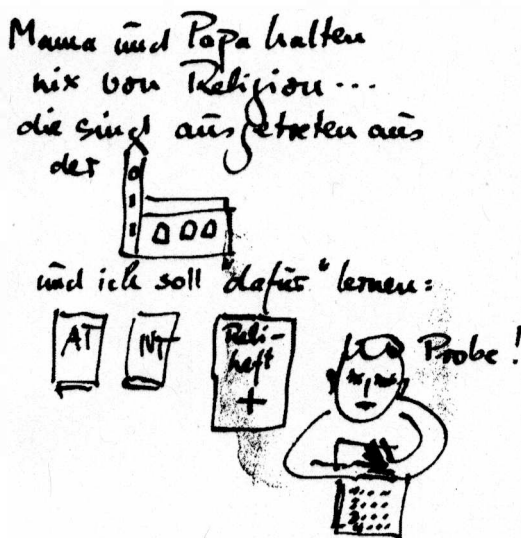 Mama und Papa halten
nix von Religion...
die sind ausgetreten aus
der
und ich soll "dafür" lernen:
AT
NT
Reli-
heft
Probe!